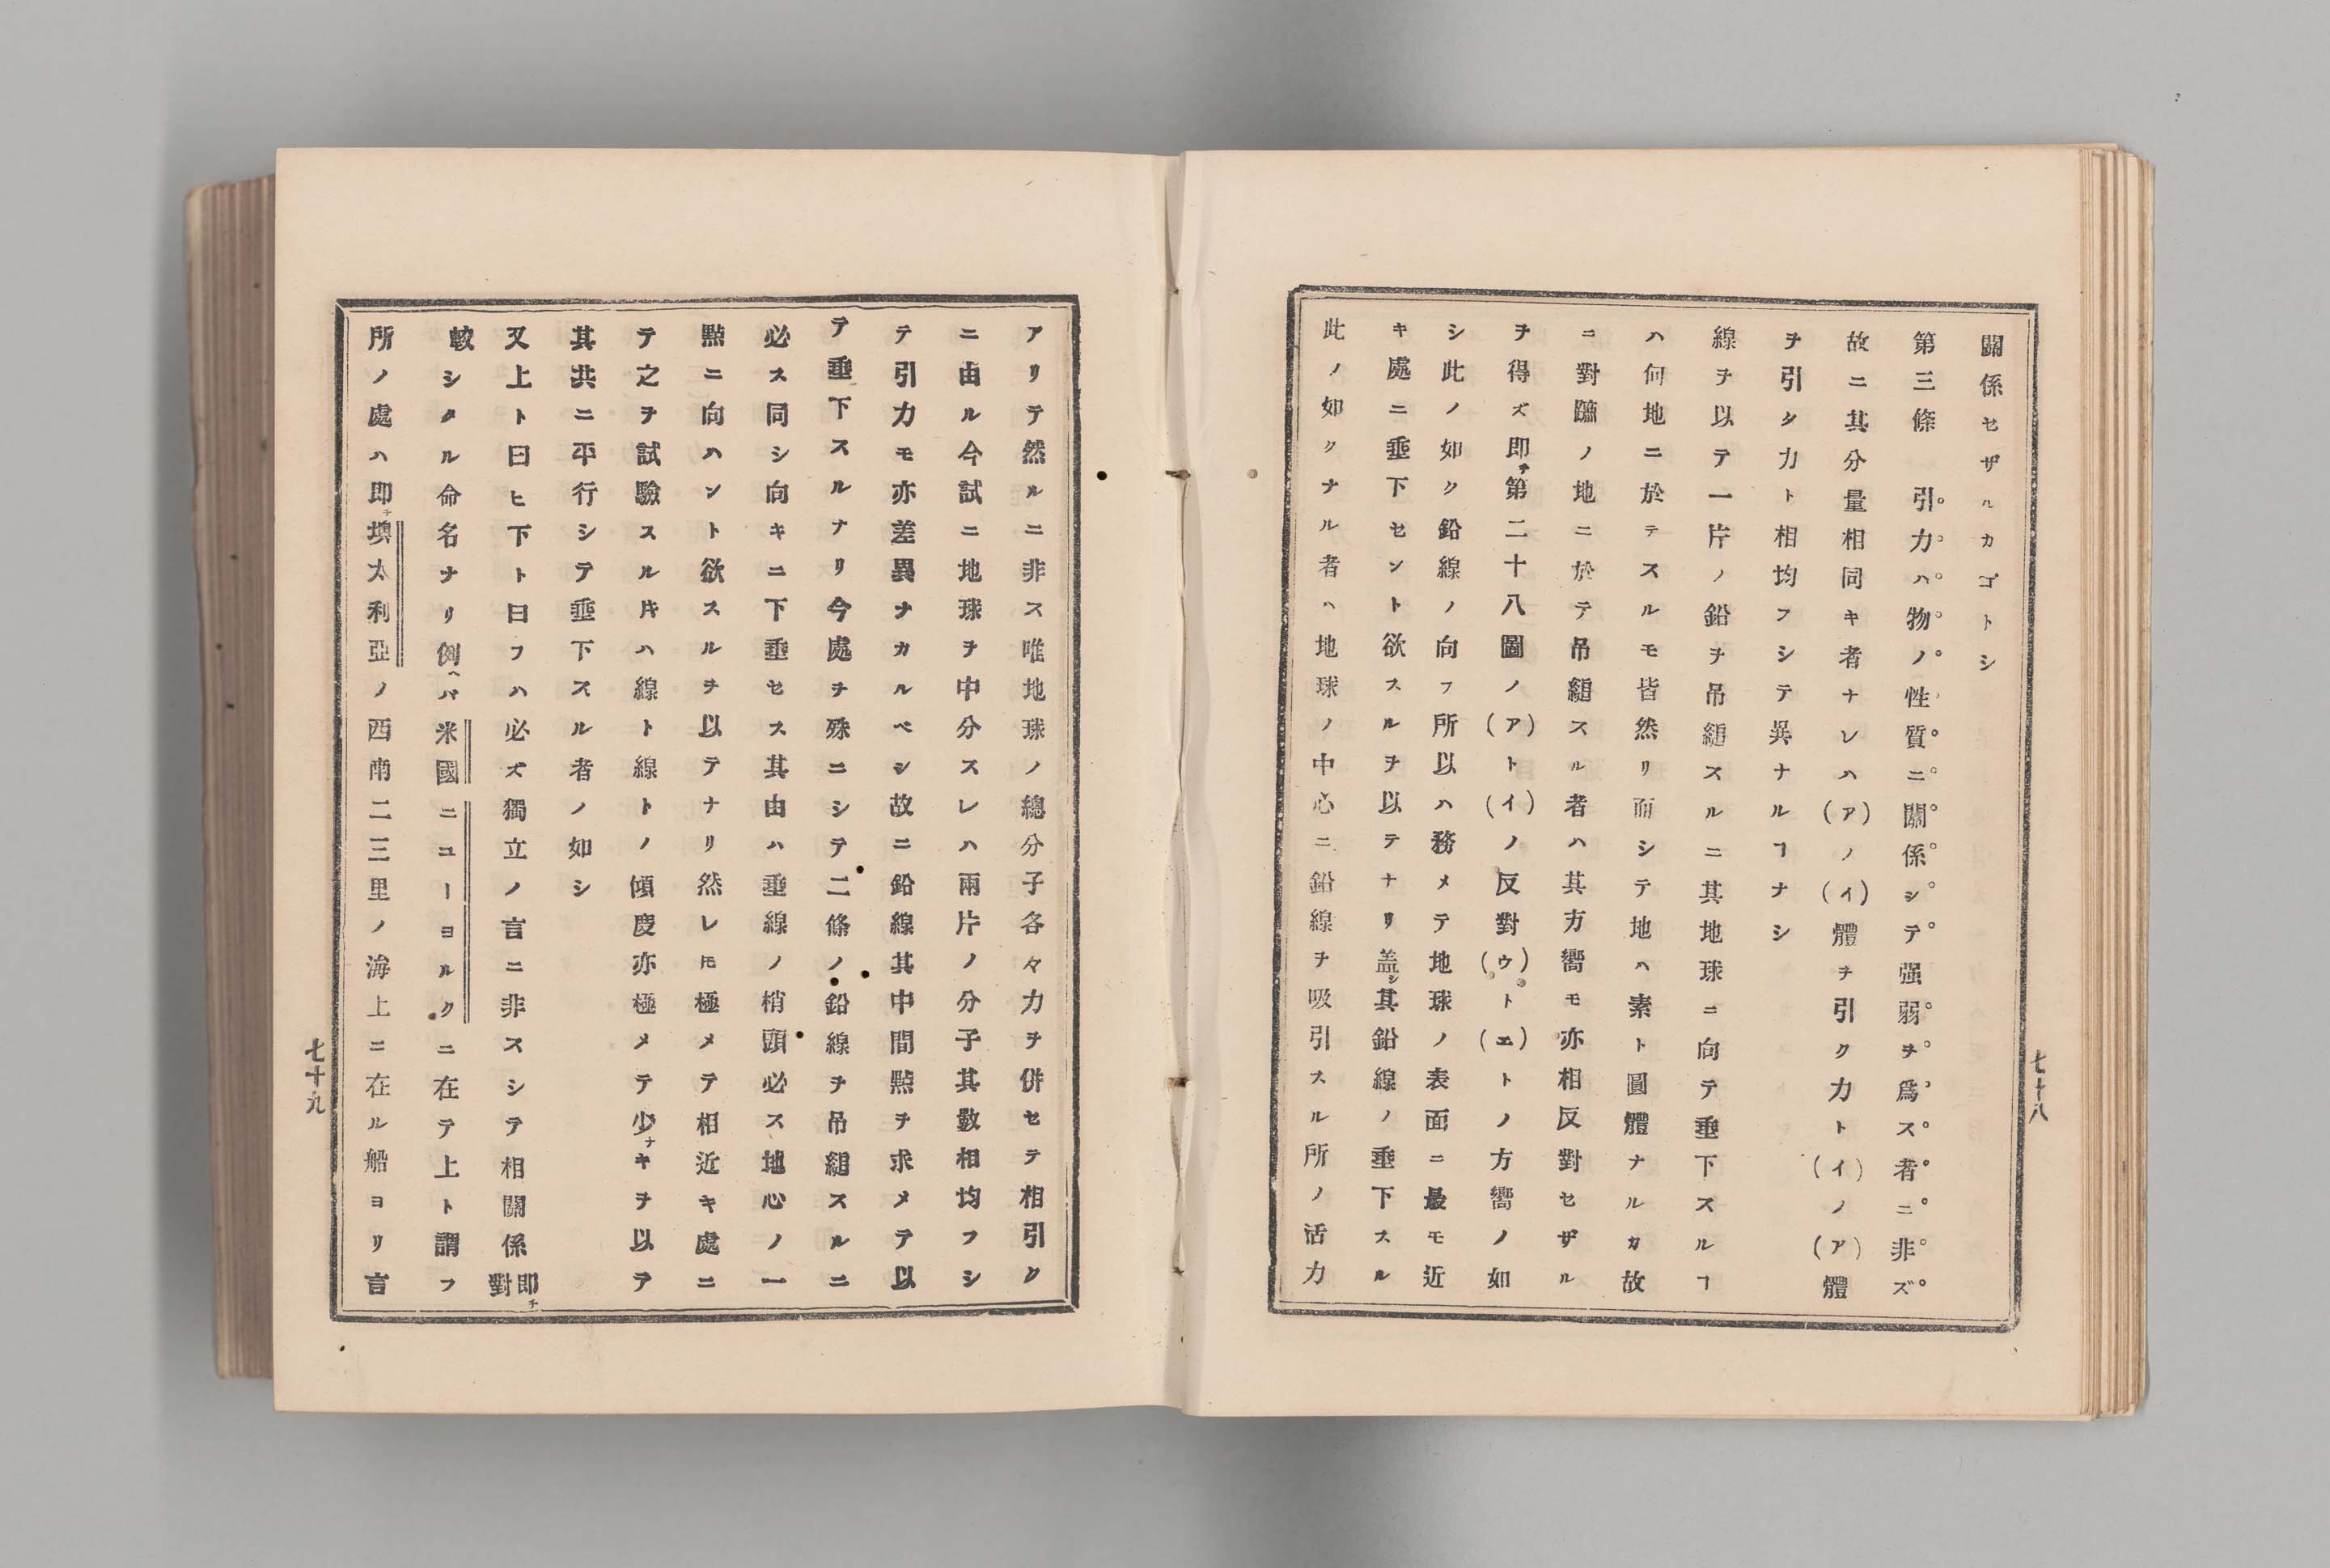 關係セザルカゴトシ
第三條　引力ハ物ノ性質ニ關係シテ强弱ヲ爲ス者ニ非ズ
故ニ其分量相同キ者ナレハ(ア)ノ(イ)體ヲ引ク力ト(イ)ノ(ア)體
ヲ引ク力ト相均フシテ異ナルヿナシ
線ヲ以テ一片ノ鉛ヲ吊縋スルニ其地球ニ向テ垂下スルヿ
ハ何地ニ於テスルモ皆然リ而シテ地ハ素ト圓體ナルカ故
ニ對蹠ノ地ニ於テ吊縋スル者ハ其方嚮モ亦相反對セザル
ヲ得ズ即チ第二十八圖ノ(ア)ト(イ)ノ反對(ウ)ト(エ)トノ方嚮ノ如
シ此ノ如ク鉛線ノ向フ所以ハ務メテ地球ノ表面ニ最モ近
キ處ニ垂下セント欲スルヲ以テナリ盖シ其鉛線ノ垂下スル
此ノ如クナル者ハ地球ノ中心ニ鉛線ヲ吸引スル所ノ活力
七十八
アリテ然ルニ非ス唯地球ノ總分子各々力ヲ併セテ相引ク
ニ由ル今試ニ地球ヲ中分スレハ兩片ノ分子其數相均フシ
テ引力モ亦差異ナカルベシ故ニ鉛線其中間點ヲ求メテ以
テ垂下スルナリ今處ヲ殊ニシテ二條ノ鉛線ヲ吊縋スルニ
必ス同シ向キニ下垂セス其由ハ垂線ノ梢頭必ス地心ノ一
點ニ向ハント欲スルヲ以テナリ然レ𪜈極メテ相近キ處ニ
テ之ヲ試驗スル片ハ線ト線トノ傾度亦極メテ少ナキヲ以テ
其共ニ平行シテ垂下スル者ノ如シ
又上ト曰ヒ下ト曰フハ必ズ獨立ノ言ニ非スシテ相關係即チ對
較シタル命名ナリ例ヘバ米國ニユーヨルクニ在テ上ト謂フ
所ノ處ハ即チ墺太利亞ノ西南二三里ノ海上ニ在ル船ヨリ言
七十九